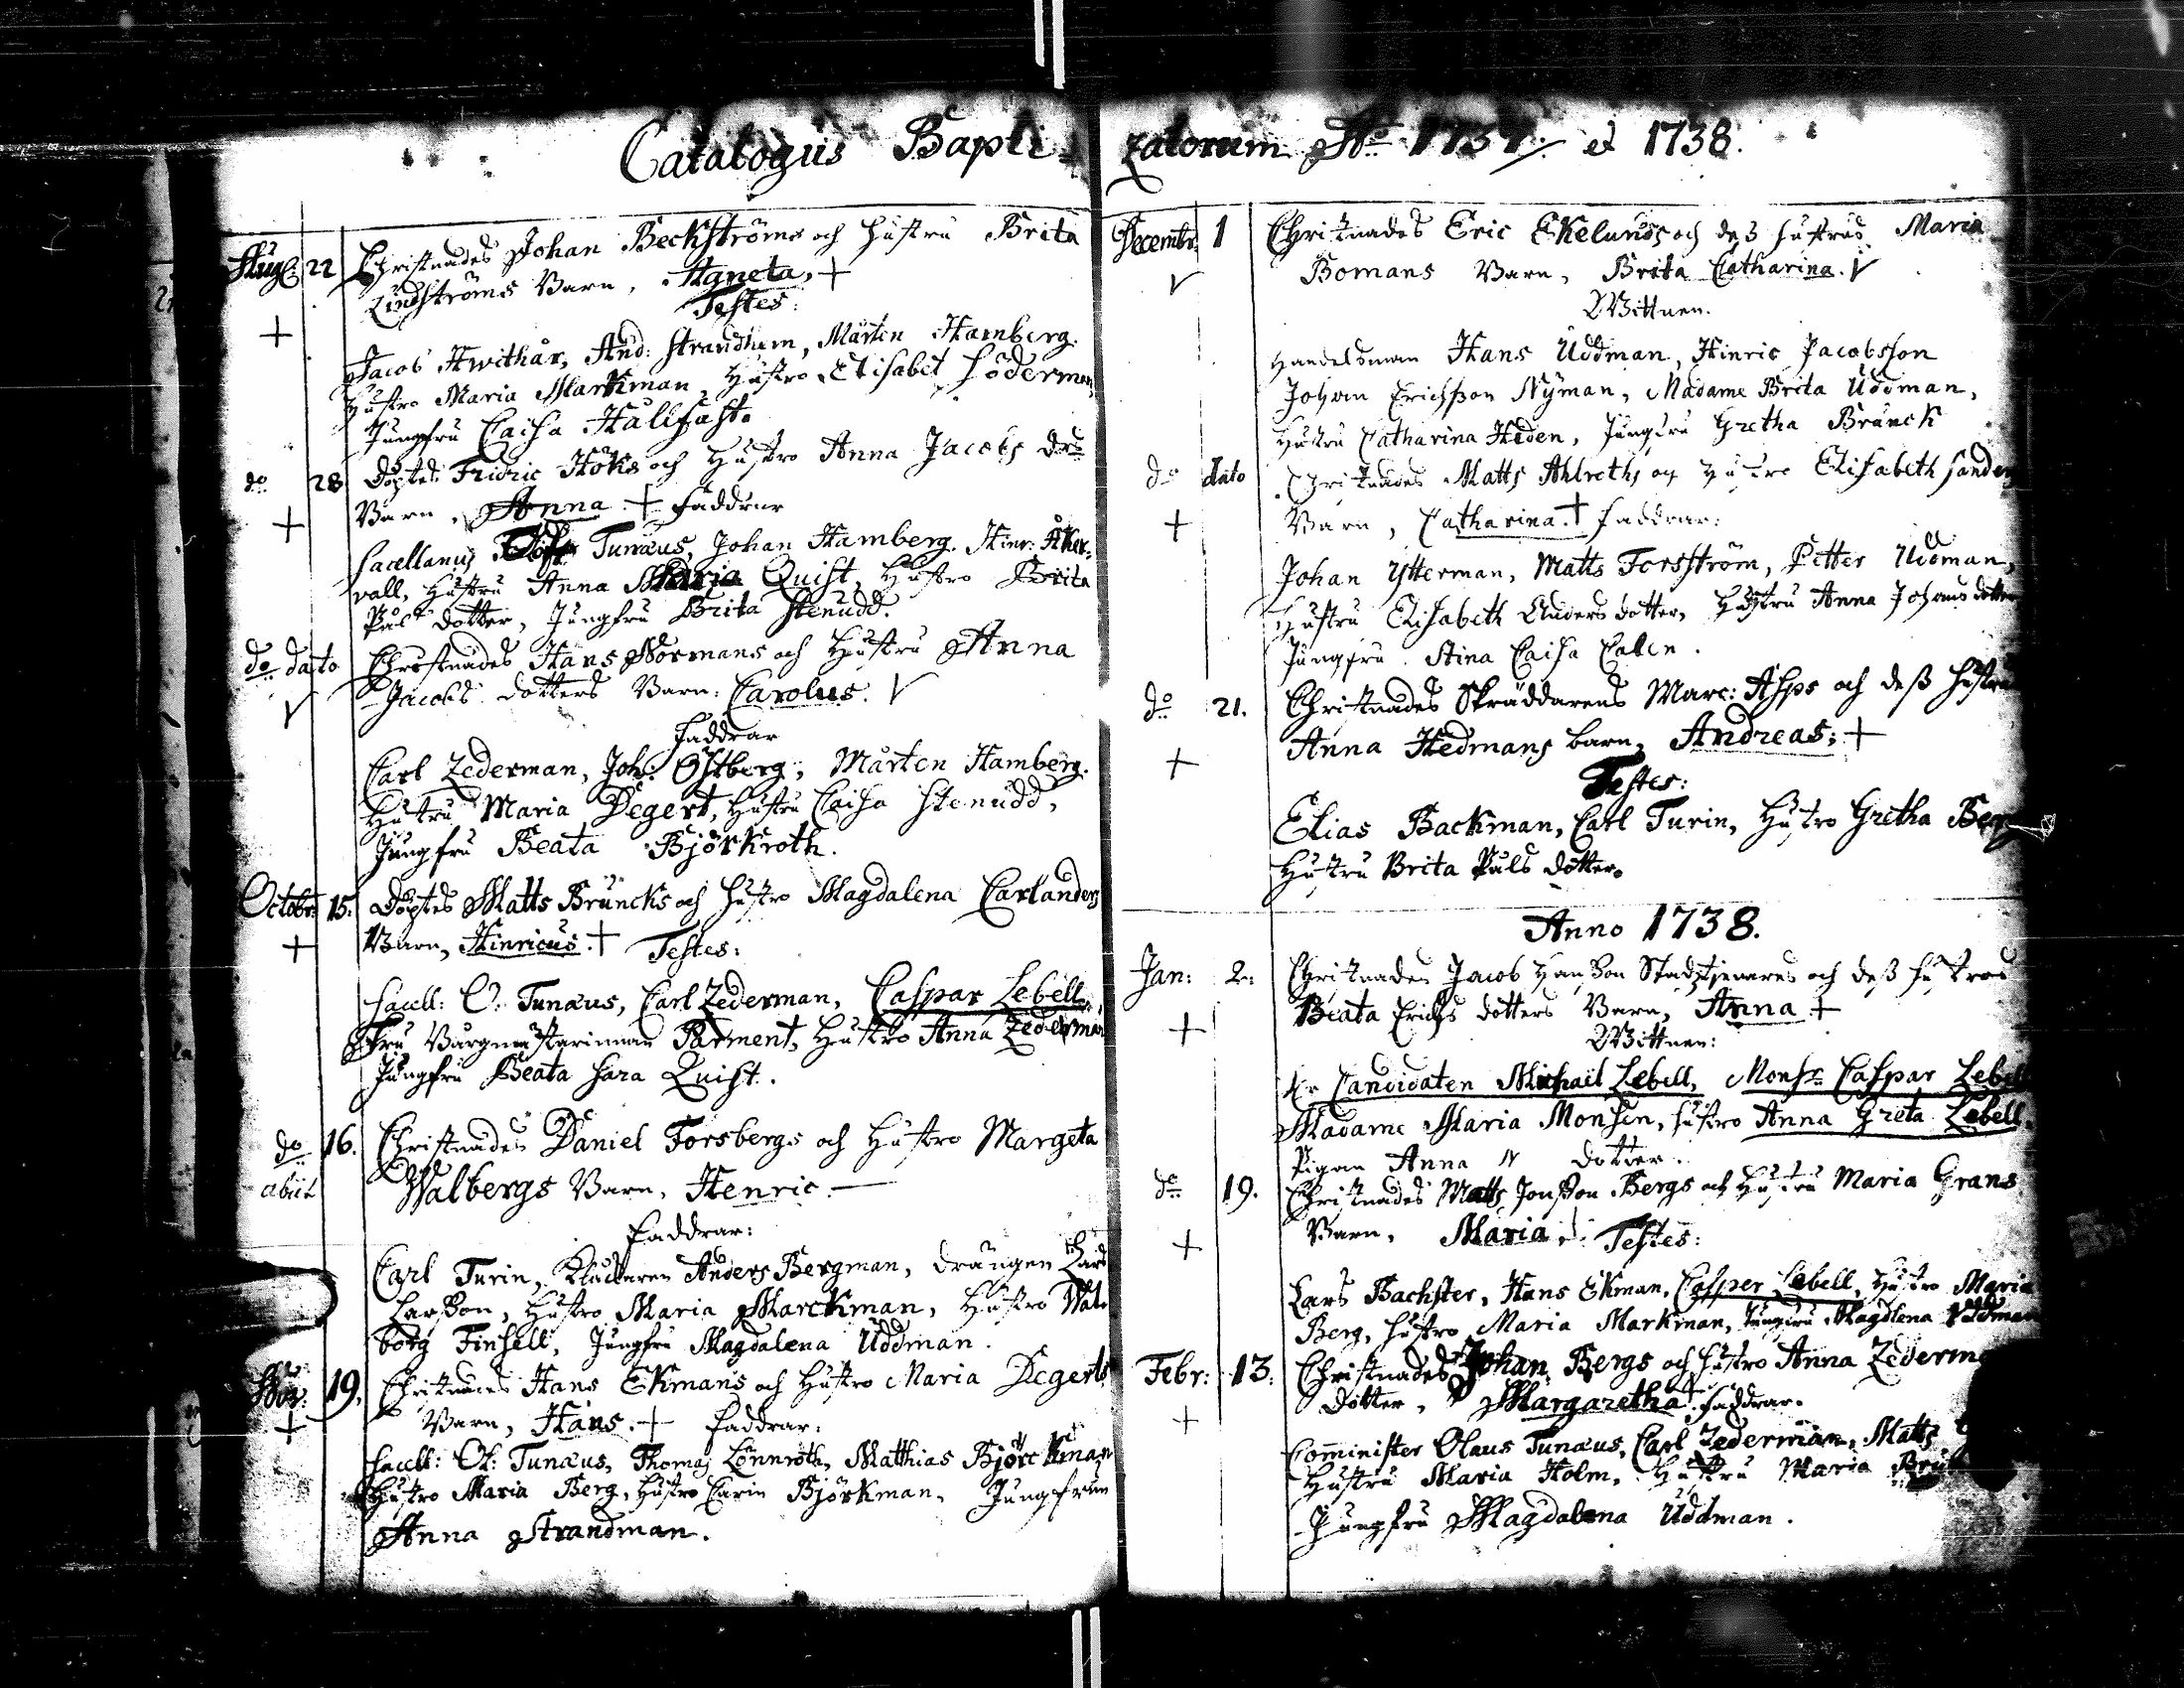 Catalogus Bapti-
Aug: 22 Christnades Johan Beckströms och Hustru Brita
Lindströms Barn, Agneta, +
Testes:
+
Jacob Hwithår, And: Strandhem, Mårten Hamberg.
Hustro Maria Markman, Hustro Elisabet Söderman,
Jungfru Caisa Hällfast.
do 28 Döptes Fridric Höks och Hustro Anna Jacobs drs
+ Barn, Anna + Faddrar
Sacellanus Tunæus, Johan Hamberg. Hinr: Åker-
vall, Hustru Anna Maria Quist, Hustro Brita
Påls dotter, Jungfru Brita Stenudd.
do dato Christnades Hans Normans och Hustru Anna
V Jacobs dotters Barn: Carolus. V
Faddrar
Carl Zederman, Joh: Östberg, Mårten Hamberg.
Hustru Maria Degert, Hustru Caisa Stenudd,
Jungfru Beata Björkroth.
Octobr: 15. Döptes Matts Bruncks och Hustro Magdalena Carlanders
+ Barn, Hinricus. + Testes:
Sacell: O. Tunæus, Carl Zederman, Caspar Lebell,
Fru Borgmästarinnan Parment, Hustro Anna Zederman
Jungfru Beata Sara Quist.
do 16. Christnades Daniel Forsbergs och Hustro Margeta
abiit Walbergs Barn, Henric. —
Faddrar:
Carl Turin, Klåckaren Anders Bergman, drängen Lars
Larsson, Hustro Maria Marckman, Hustro Wal-
borg Finsell, Jungfru Magdalena Uddman.
Nov: 19. Christnades Hans Ekmans och Hustro Maria Degerts
+ Barn, Hans. + Faddrar:
Sacell: Ol: Tunæus, Thomas Lönnroth, Matthias Björckman
Hustro Maria Berg, Hustro Carin Björkman, Jungfrun
Anna Strandman.
zatorum Ao 1737. et 1738.
Decembr: 1 Christnades Eric Ekelunds och dess hustrus Maria
V Bomans Barn, Brita Catharina. V
Wittnen.
Handelsman Hans Uddman, Hinric Jacobsson
Johan Erichsson Nyman, Madame Brita Uddman,
Hustru Catharina Heden, Jungfru Gretha Brunck
do dato Christnades Matts Ahlroths och Hustro Elisabeth Sanders
+ Barn, Catharina. + Faddrar:
Johan Ytterman, Matts Forsström, Petter Uddman,
Hustru Elisabeth Anders dotter, Hustru Anna Johans dotter
Jungfru Stina Caisa Calen.
do 21. Christnades Skräddarens Marc: Asps och dess Hustru
+ Anna Hedmans barn, Andreas; +
Testes:
Elias Backman, Carl Turin, Hustro Gretha Berg
Hustru Brita Påls dotter.
Anno 1738.
Jan: 2: Christnades Jacob Hansson Stadztjenares och dess hustrus
+ Beata Erichs dotters Barn, Anna +
Wittnen:
Hr Candidaten Michaël Lebell, Monsr Caspar Lebell
Madame Maria Monsen, Hustro Anna Greta Lebell.
Pigan Anna N dotter.
do 19. Christnades Matts Jonsson Bergs och Hustru Maria Grans
+ Barn, Maria. Testes:
Lars Bachster, Hans Ekman, Casper Lebell, Hustro Maria
Berg, Hustro Maria Markman, Jungfru Magdlena Uddman
Febr: 13. Christnades Johan Bergs och Hustro Anna Zederm
+ dotter, Margaretha. + Faddrar.
Comminister Olaus Tunæus, Carl Zederman, Matts
Hustru Maria Holm, Hustru Maria
Jungfru Magdalena Uddman.